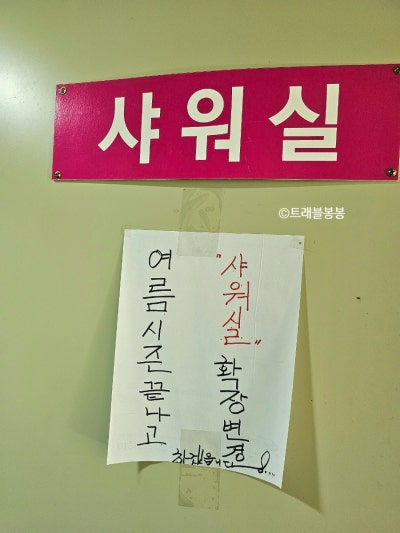 샤워실
©트래블봉봉
여름시즌끝나고
"샤워실"
확장변경
하겠습니다!...